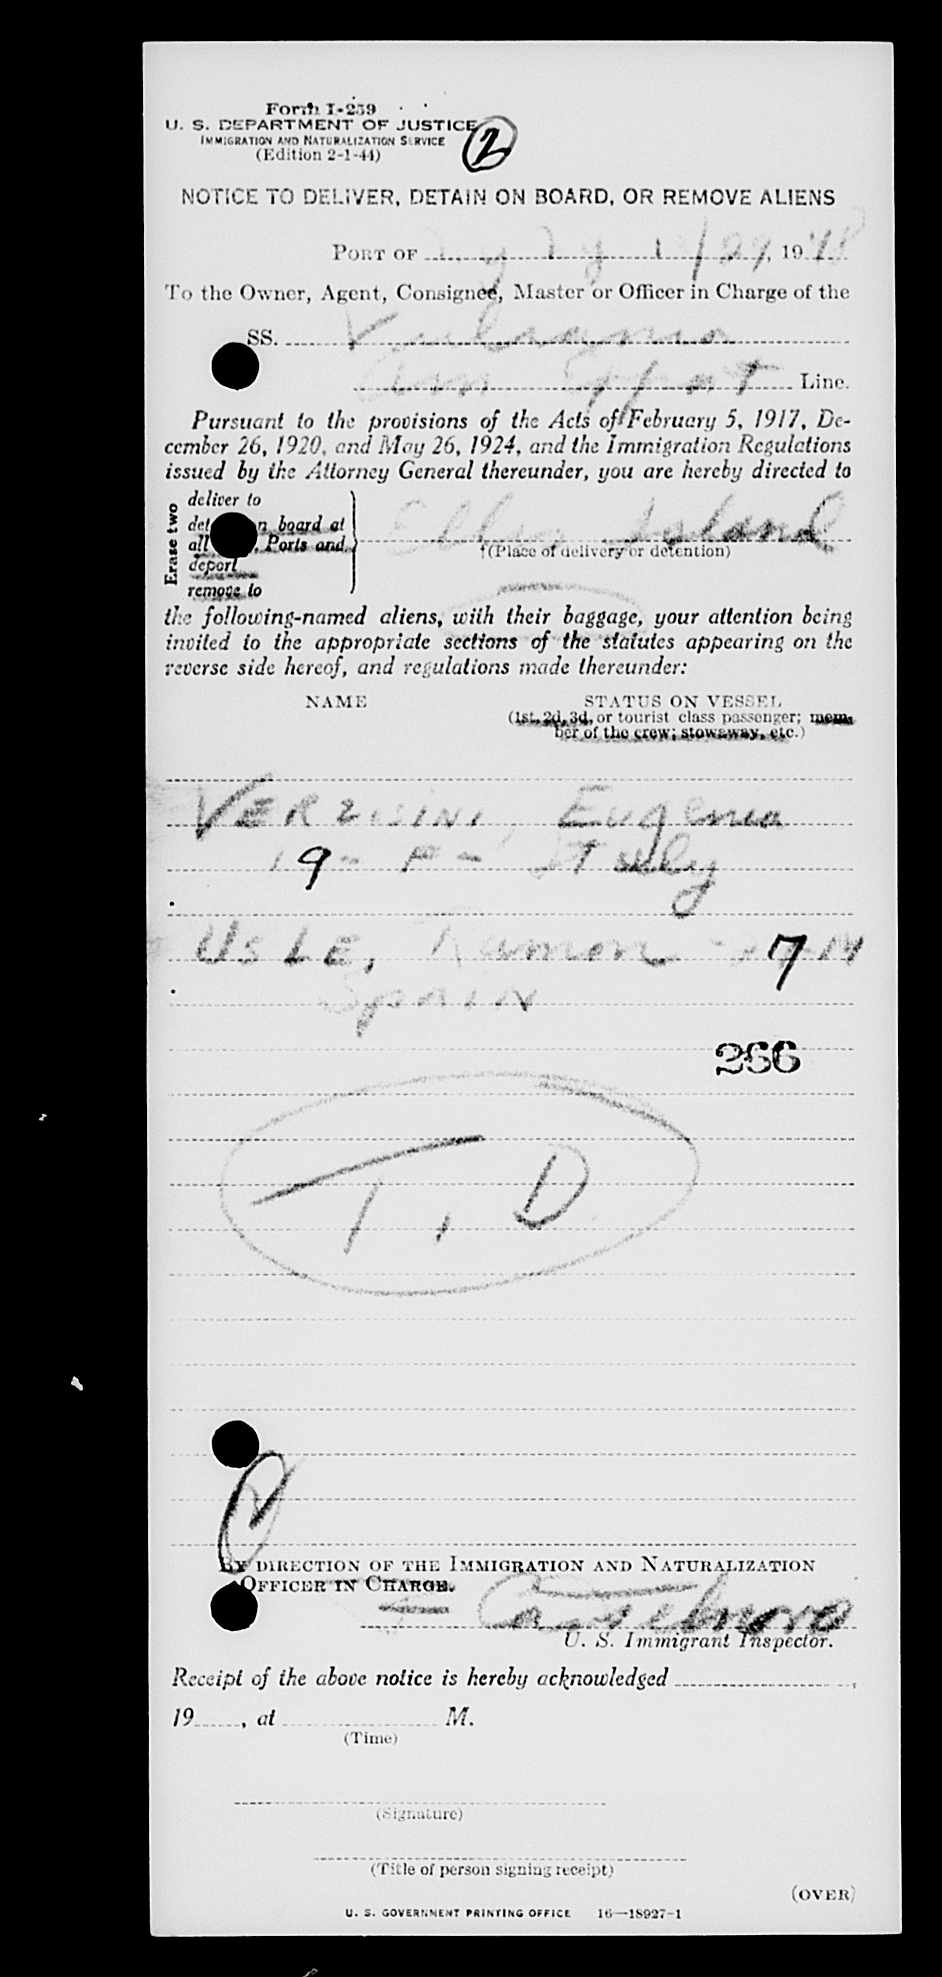 Form I-259
U. S. DEPARTMENT OF JUSTICE
IMMIGRATION AND NATURALIZATION SERVICE
(Edition 2-1-44)
2
NOTICE TO DELIVER, DETAIN ON BOARD, OR REMOVE ALIENS
PORT OF 29, 19
To the Owner, Agent, Consignee, Master or Officer in Charge of the
SS. Vulcania
Am Export Line.
Pursuant to the provisions of the Acts of February 5, 1917, De-
cember 26, 1920, and May 26, 1924, and the Immigration Regulations
issued by the Attorney General thereunder, you are hereby directed to
Erase two
deliver to
on board at
all Ports and
deport
remove to
Ellis Island
(Place of delivery or detention)
the following-named aliens, with their baggage, your attention being
invited to the appropriate sections of the statutes appearing on the
reverse side hereof, and regulations made thereunder:
NAME STATUS ON VESSEL
(1st, 2d, 3d, or tourist class passenger; mem-
ber of the crew; stowaway, etc.)
Eugenia
19 - F - Italy
USLE, Ramon - 7 M
Spain
266
T. D
BY DIRECTION OF THE IMMIGRATION AND NATURALIZATION
OFFICER IN CHARGE.
U. S. Immigrant Inspector.
Receipt of the above notice is hereby acknowledged ,
19 , at M.
(Time)
(Signature)
(Title of person signing receipt)
(OVER)
U. S. GOVERNMENT PRINTING OFFICE 16—18927-1